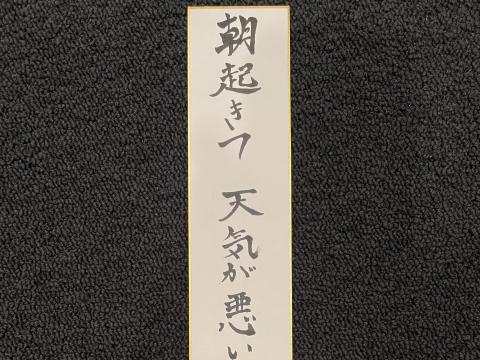 朝起きて 天気が悪い